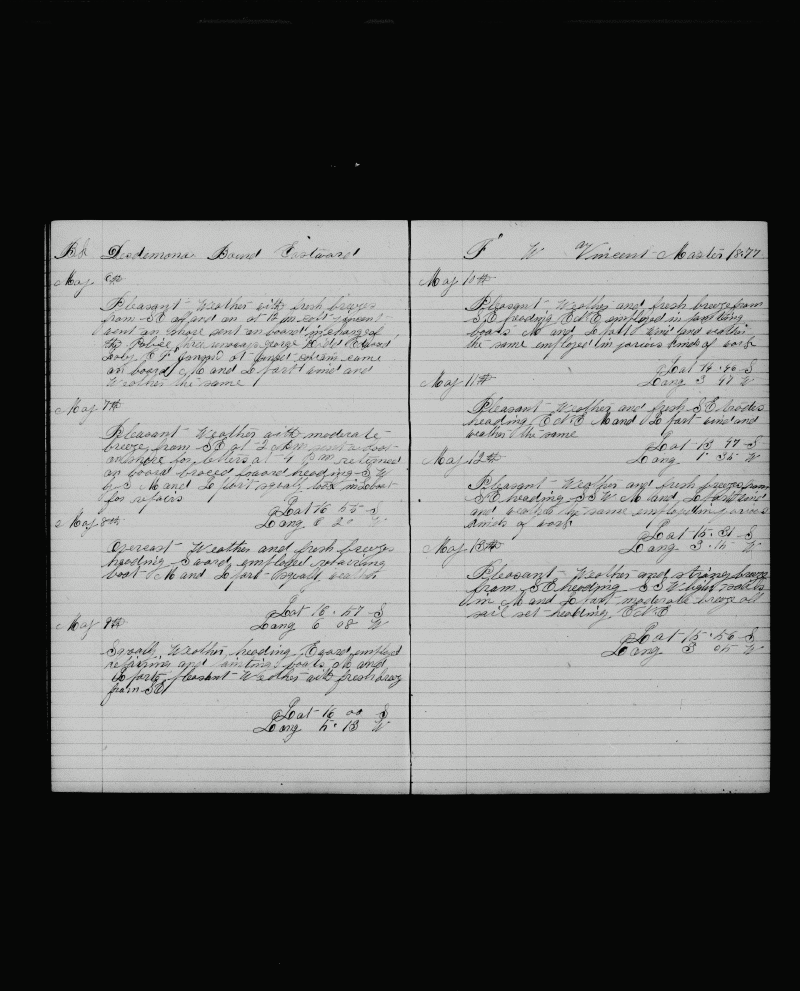 Bk Desdemona Bound Eastward
May 6th
Pleasant Weather with fresh breezes
from SE off and on at
sent on shore sent on board in charge of
the Police three
at
on board M and L part wind and
Weather the same
May 7th
Pleasant Weather with moderate
breeze from SE at 2 sent a boat
on shore for letters at 4 Pm returned
on board braced heading S W
by S M and L part squally took in boat
for repairs
Lat 16 55 S
Long 6 20 W
May 8th
Overcast Weather and fresh breezes
heading S ward employed repairing
boat M and L part squally weather
Lat 16.57 S
Long 6 08 W
May 9th
Squally Weather heading E ward employed
repairing and painting boats M and
L parts pleasant Weather with fresh breez
from SE
Lat 16 00 S
Long 5.13 W
F W Vincent Master 1877
May 10th
Pleasant Weather and fresh breeze from
S E heading E b N E employed in painting
boats M and L part wind and weather
the same employed in various kinds of work
Lat 14.46 S
Long 3 47 W
May 11th
Pleasant Weather and fresh S E trades
heading M and L part wind and
weather the same
Lat 13 47 S
Long 1.36 W
May 12th
Pleasant Weather and fresh breezes from
S E heading S S W M and L part wind
and weather the same employed in various
kinds of work
Lat 15.31 S
Long 3.15 W
May 13th
Pleasant Weather and strong breeze
from S E heading S S W light sails
in M and L part moderate breeze all
sail set heading
Lat 15.56 S
Long 3 05 W